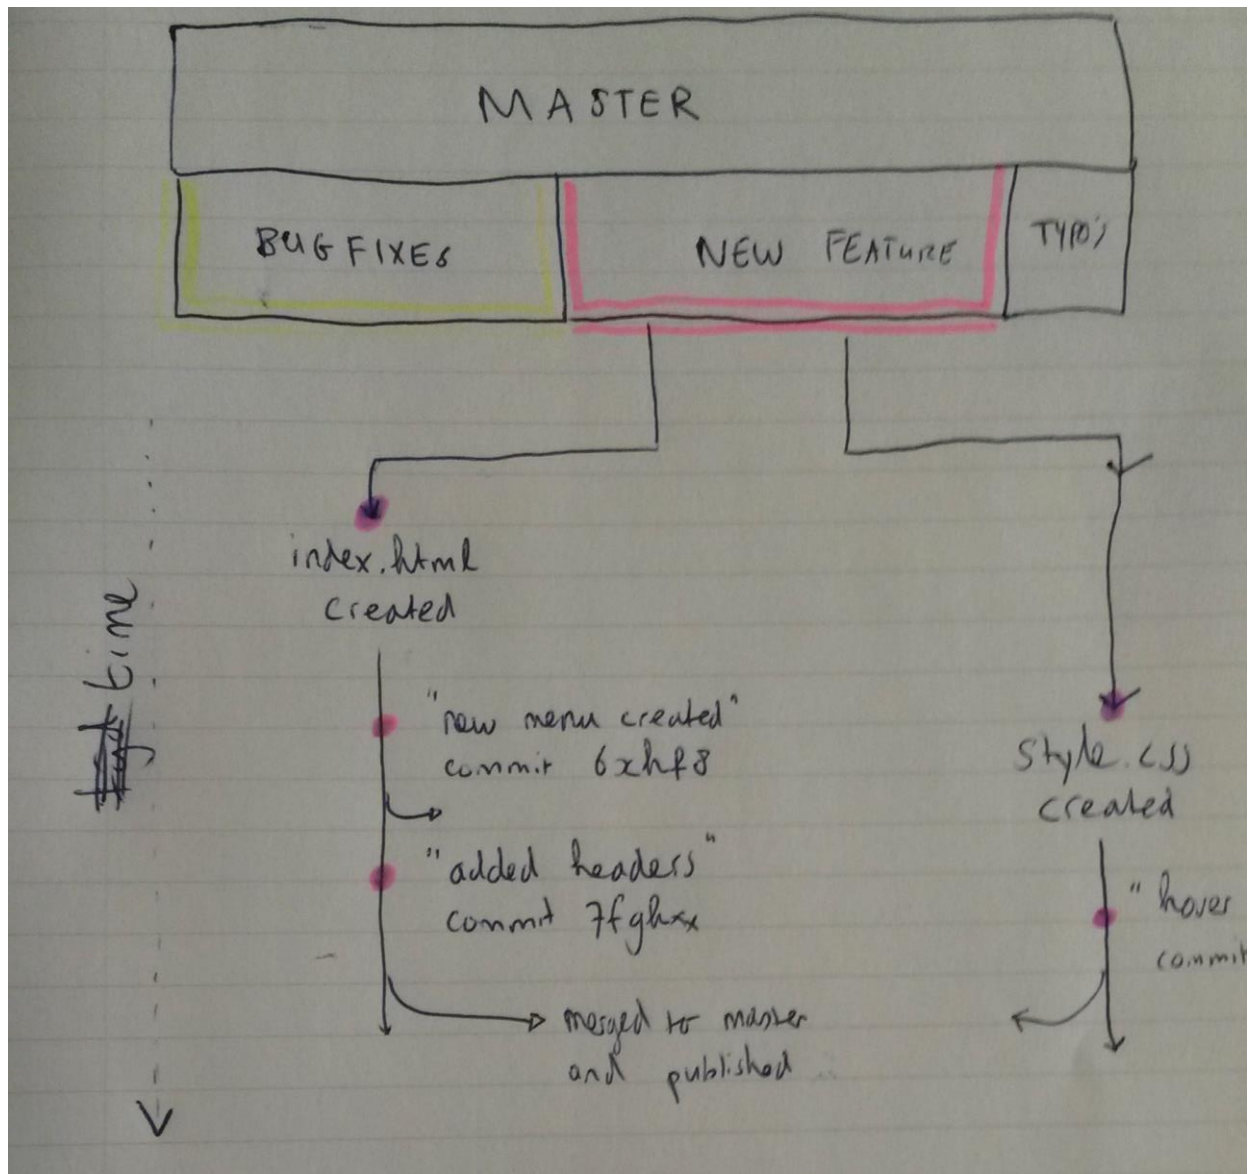 MASTER
BUG FIXES
NEW FEATURE
TYPO's
index.html
created
time
"new menu created"
commit 6xhf8
"added headers"
commit 7fghxx
merged to master
and published
style.css
created
"hover
commit